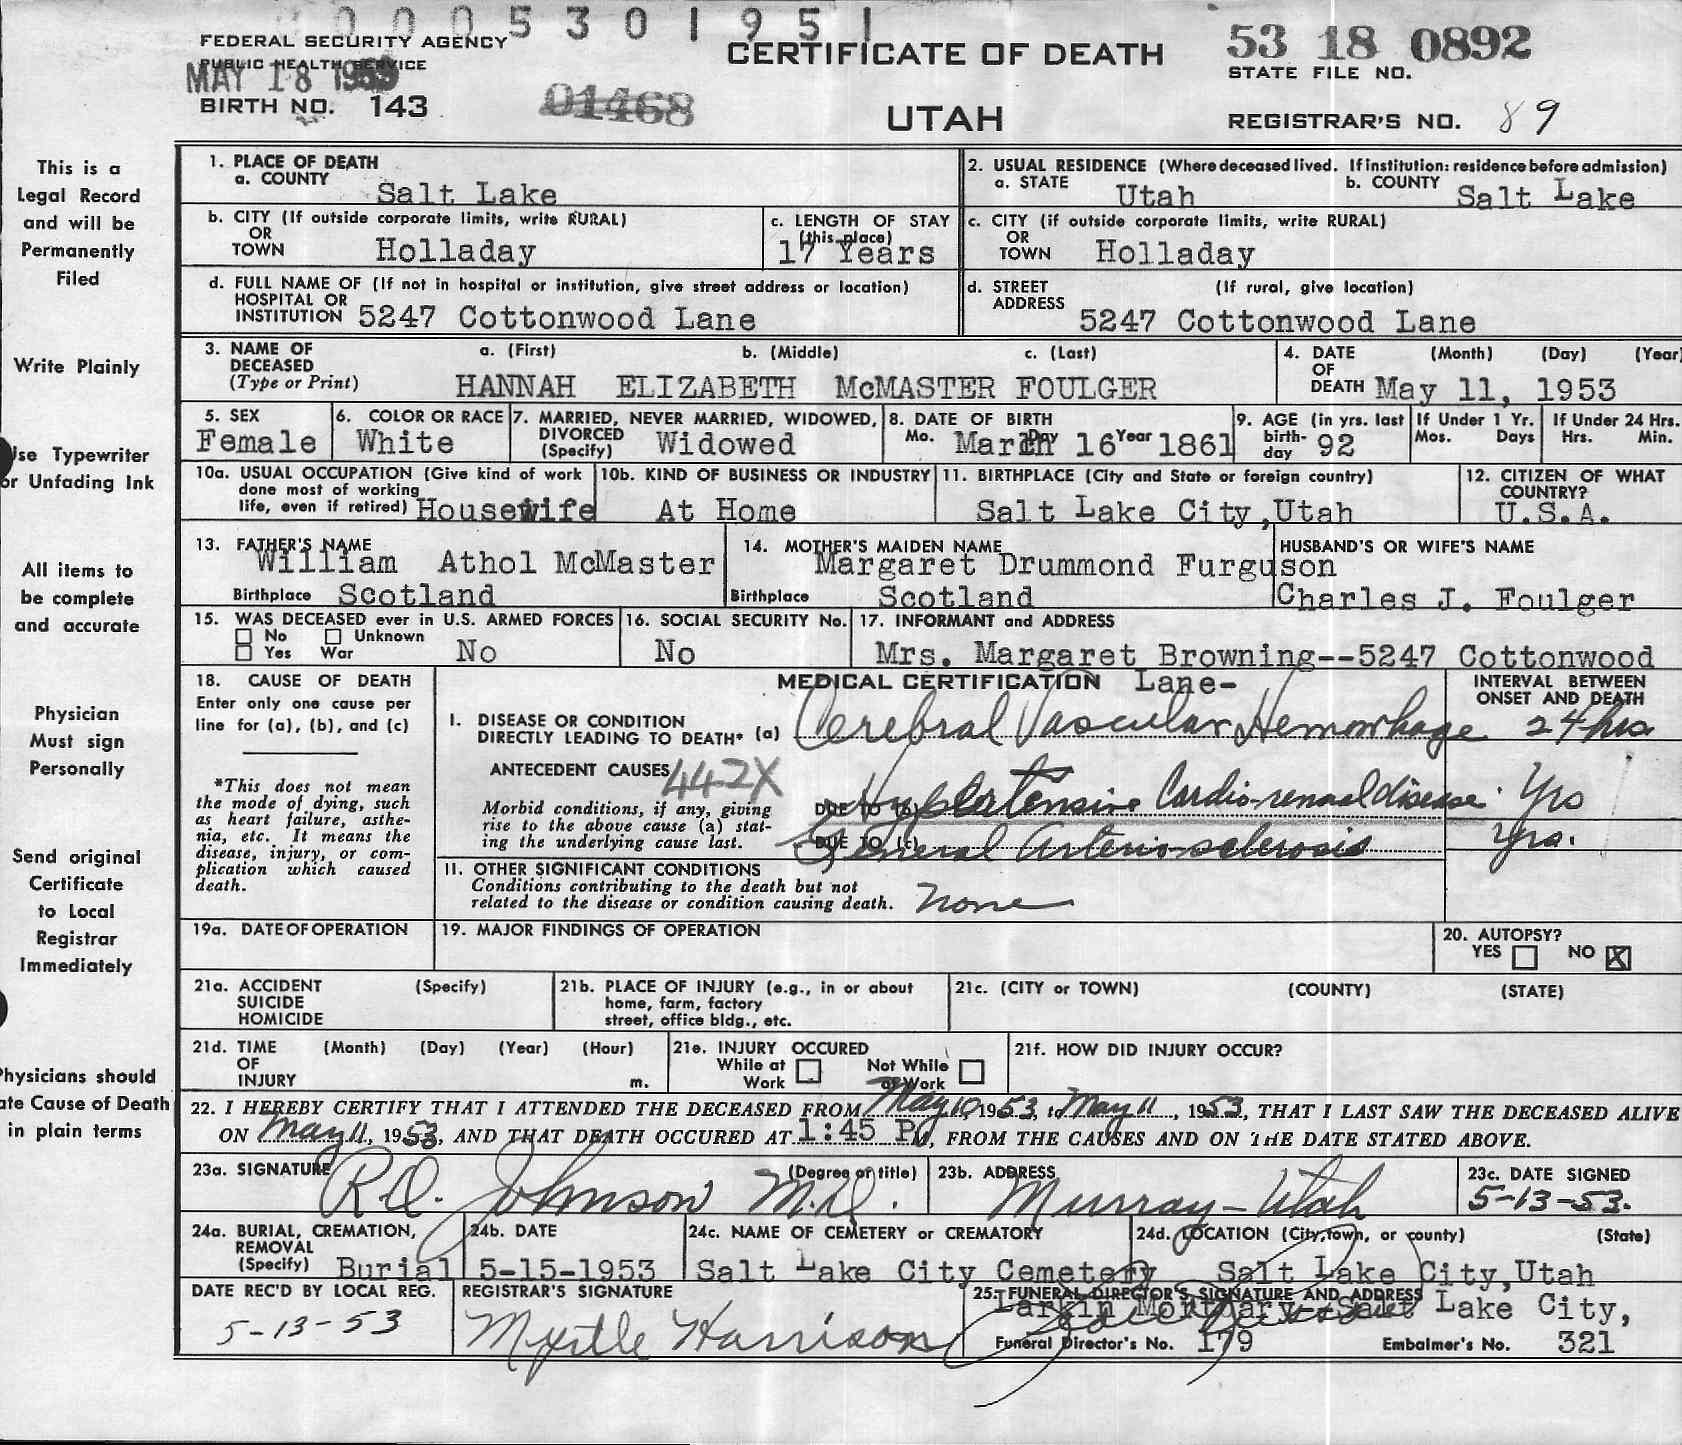 0 0 0 5 3 0 1 9 5 1
FEDERAL SECURITY AGENCY
PUBLIC HEALTH SERVICE
MAY 18 1953
BIRTH NO. 143
01468
CERTIFICATE OF DEATH
UTAH
53 18 0892
STATE FILE NO.
REGISTRAR'S NO. 89
This is a
Legal Record
and will be
Permanently
Filed
Write Plainly
Use Typewriter
or Unfading Ink
All items to
be complete
and accurate
Physician
Must sign
Personally
Send original
Certificate
to Local
Registrar
Immediately
Physicians should
ate Cause of Death
in plain terms
1. PLACE OF DEATH
a. COUNTY
Salt Lake
2. USUAL RESIDENCE (Where deceased lived. If institution: residence before admission)
a. STATE Utah b. COUNTY Salt Lake
b. CITY (If outside corporate limits, write RURAL)
OR
TOWN Holladay
c. LENGTH OF STAY
(this place)
17 Years
c. CITY (if outside corporate limits, write RURAL)
OR
TOWN Holladay
d. FULL NAME OF (If not in hospital or institution, give street address or location)
HOSPITAL OR
INSTITUTION 5247 Cottonwood Lane
d. STREET (If rural, give location)
ADDRESS
5247 Cottonwood Lane
3. NAME OF a. (First) b. (Middle) c. (Last)
DECEASED
(Type or Print) HANNAH ELIZABETH McMASTER FOULGER
4. DATE (Month) (Day) (Year)
OF
DEATH May 11, 1953
5. SEX
Female
6. COLOR OR RACE
White
7. MARRIED, NEVER MARRIED, WIDOWED,
DIVORCED
(Specify) Widowed
8. DATE OF BIRTH
Mo. March Day 16 Year 1861
9. AGE (in yrs. last
birth-
day 92
If Under 1 Yr.
Mos. Days
If Under 24 Hrs.
Hrs. Min.
10a. USUAL OCCUPATION (Give kind of work
done most of working
life, even if retired) Housewife
10b. KIND OF BUSINESS OR INDUSTRY
At Home
11. BIRTHPLACE (City and State or foreign country)
Salt Lake City,Utah
12. CITIZEN OF WHAT
COUNTRY?
U.S.A.
13. FATHER'S NAME
William Athol McMaster
Birthplace Scotland
14. MOTHER'S MAIDEN NAME
Margaret Drummond Furguson
Birthplace Scotland
HUSBAND'S OR WIFE'S NAME
Charles J. Foulger
15. WAS DECEASED ever in U.S. ARMED FORCES
No Unknown
Yes War No
16. SOCIAL SECURITY No.
No
17. INFORMANT and ADDRESS
Mrs. Margaret Browning--5247 Cottonwood
Lane-
18. CAUSE OF DEATH
Enter only one cause per
line for (a), (b), and (c)
*This does not mean
the mode of dying, such
as heart failure, asthe-
nia, etc. It means the
disease, injury, or com-
plication which caused
death.
MEDICAL CERTIFICATION
INTERVAL BETWEEN
ONSET AND DEATH
I. DISEASE OR CONDITION
DIRECTLY LEADING TO DEATH* (a) Cerebral Vascular Hemorrhage 24 hrs
ANTECEDENT CAUSES 442X
Morbid conditions, if any, giving
rise to the above cause (a) stat-
ing the underlying cause last.
DUE TO (b) Hypertensive Cardio-renal disease Yrs
DUE TO (c) General Arterio-sclerosis yrs.
11. OTHER SIGNIFICANT CONDITIONS
Conditions contributing to the death but not
related to the disease or condition causing death. none
19a. DATE OF OPERATION
19. MAJOR FINDINGS OF OPERATION
20. AUTOPSY?
YES NO X
21a. ACCIDENT (Specify)
SUICIDE
HOMICIDE
21b. PLACE OF INJURY (e.g., in or about
home, farm, factory
street, office bldg., etc.
21c. (CITY or TOWN) (COUNTY) (STATE)
21d. TIME (Month) (Day) (Year) (Hour)
OF
INJURY m.
21e. INJURY OCCURED
While at Not While
Work at Work
21f. HOW DID INJURY OCCUR?
22. I HEREBY CERTIFY THAT I ATTENDED THE DECEASED FROM May 10, 1953, to May 11, 1953, THAT I LAST SAW THE DECEASED ALIVE
ON May 11, 1953, AND THAT DEATH OCCURED AT 1:45 PM, FROM THE CAUSES AND ON THE DATE STATED ABOVE.
23a. SIGNATURE (Degree of title)
R.O. Johnson M.D.
23b. ADDRESS
Murray - Utah
23c. DATE SIGNED
5-13-53.
24a. BURIAL, CREMATION,
REMOVAL
(Specify) Burial
24b. DATE
5-15-1953
24c. NAME OF CEMETERY OR CREMATORY
Salt Lake City Cemetery
24d. LOCATION (City,town, or county) (State)
Salt Lake City,Utah
DATE REC'D BY LOCAL REG.
5-13-53
REGISTRAR'S SIGNATURE
Myrtle Harrison
25. FUNERAL DIRECTOR'S SIGNATURE AND ADDRESS
Larkin Mortuary--Salt Lake City,
Funeral Director's No. 179 Embalmer's No. 321